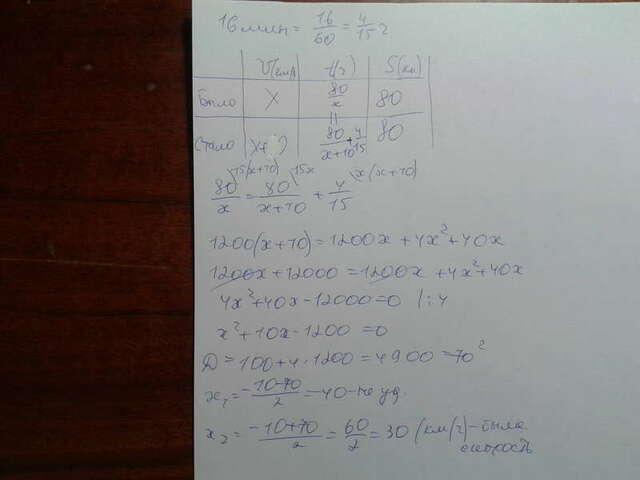 16 мин = 16/60 = 4/15 ч
V(км/ч) t(ч) S(км)
Было x 80/x 80
Стало x+ 80/x+10 + 4/15 80
15(x+10) 15x x(x+10)
80/x = 80/x+10 + 4/15
1200(x+10) = 1200x + 4x² + 40x
1200x + 12000 = 1200x + 4x² + 40x
4x² + 40x - 12000 = 0 |:4
x² + 10x - 1200 = 0
D = 100 + 4·1200 = 4900 = 70²
x₁ = -10-70/2 = -40 - не уд.
x₂ = -10+70/2 = 60/2 = 30 (км/ч) - была
скорость